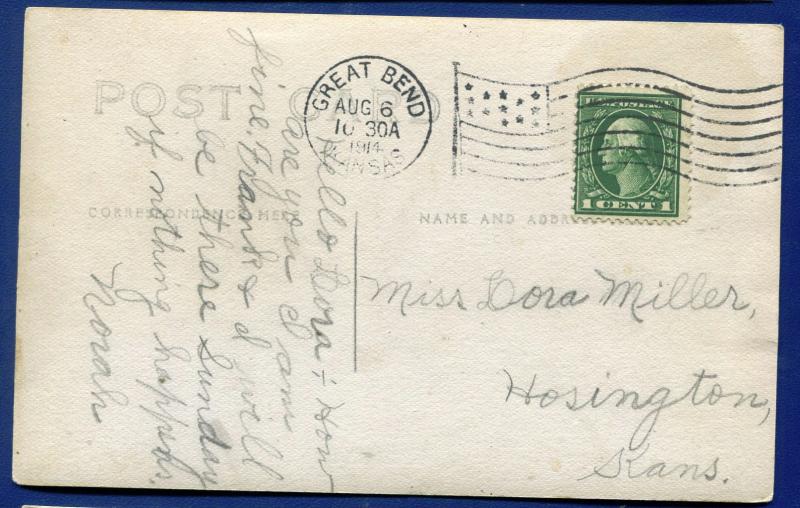 POST CARD
GREAT BEND
AUG 6
10 30A
1914
KANSAS
U.S. POSTAGE
1 CENT 1
CORRESPONDENCE HERE
NAME AND ADDRESS
Hello Dora ÷ How
are you I am
fine. Frank & I will
be there Sunday
if nothing happyds.
Norah
Miss Dora Miller,
Hosington,
Kans.